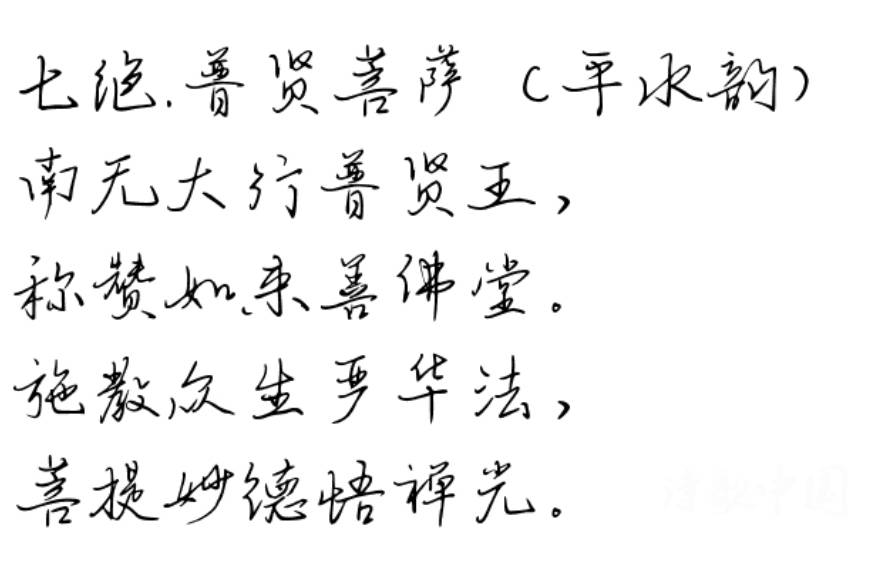 七绝.普贤菩萨（平水韵）
南无大行普贤王，
称赞如来善佛堂。
施教众生严华法，
菩提妙德悟禅光。
诗歌中国